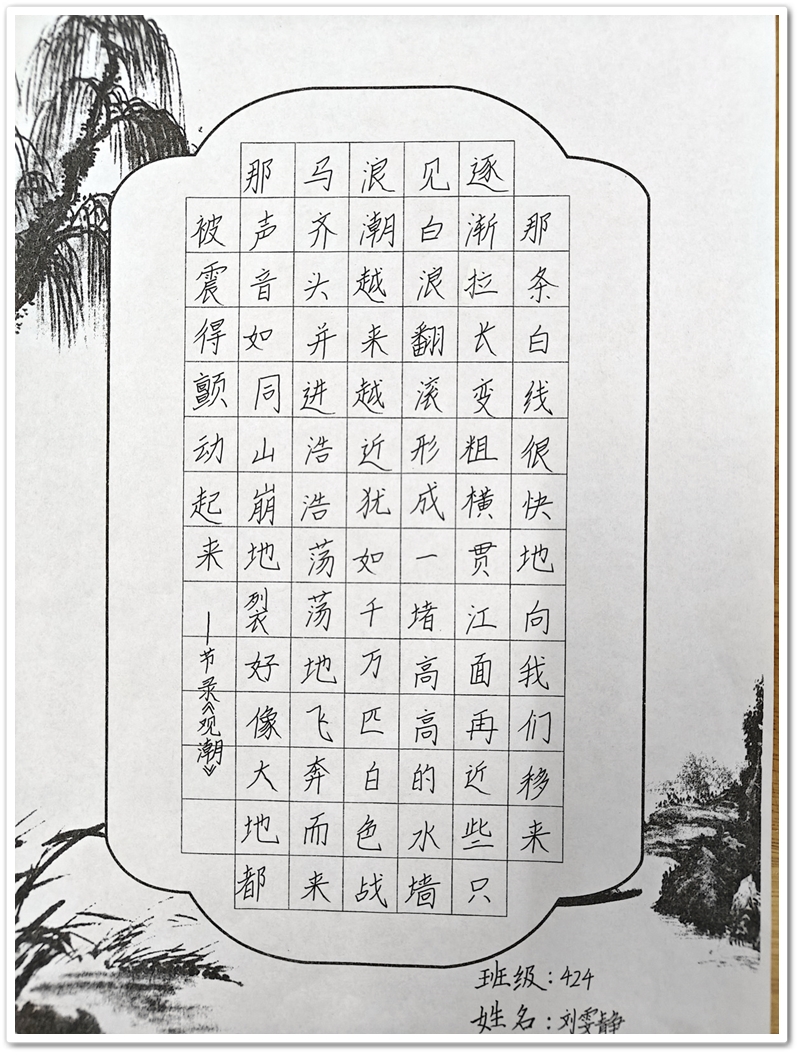 那条白线很快地向我们移来
逐渐拉长变粗横贯江面再近些只
见白浪翻滚形成一堵高高的水墙
浪潮越来越近犹如千万匹白色战
马齐头并进浩浩荡荡地飞奔而来
那声音如同山崩地裂好像大地都
被震得颤动起来
—节录《观潮》
班级：424
姓名：刘雯静